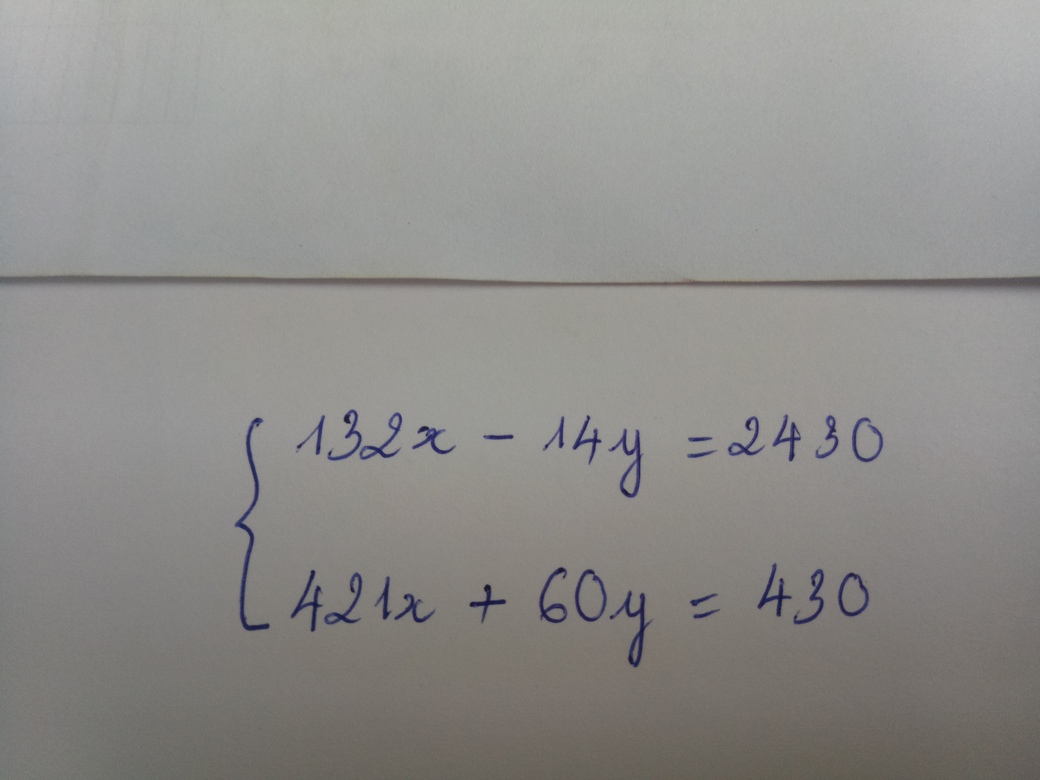 132x - 14y = 2430
421x + 60y = 430